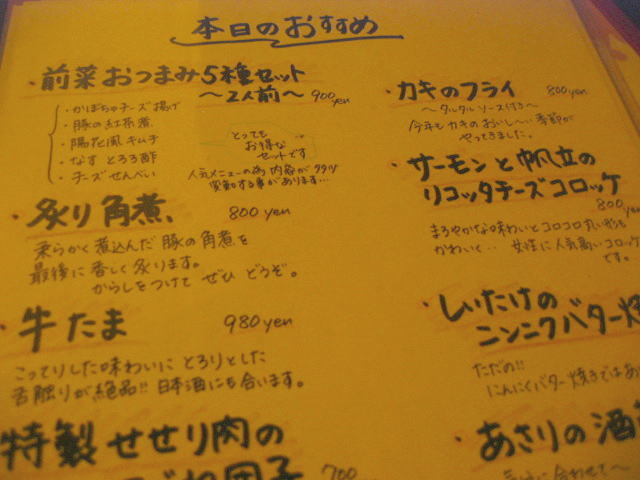 本日のおすすめ
・前菜おつまみ5種セット
〜2人前〜 900yen
・かぼちゃチーズ揚げ
・豚の紅茶煮
・陽花風キムチ
・なすとろろ酢
・チーズせんべい
とっても
お得な
セットです
人気メニューの為 内容が
変動する事があります…
・炙り角煮、 800yen
柔らかく煮込んだ豚の角煮を
最後に香しく炙ります。
からしをつけて ぜひ どうぞ。
・牛たま 980yen
こってりした味わいに とろりとした
舌触りが絶品!! 日本酒にも合います。
特製せせり肉の
団子 700
・カキのフライ 800yen
〜タルタルソース付き〜
今年もカキのおいし〜い季節が
やってきました。
・サーモンと帆立の
リコッタチーズコロッケ
800yen
まろやかな味わいとコロコロ丸い形も
かわいく… 女性に人気高いコロッケ
です。
・しいたけの
ニンニクバター焼
ただの!!
にんにくバター焼きではあ
・あさりの酒